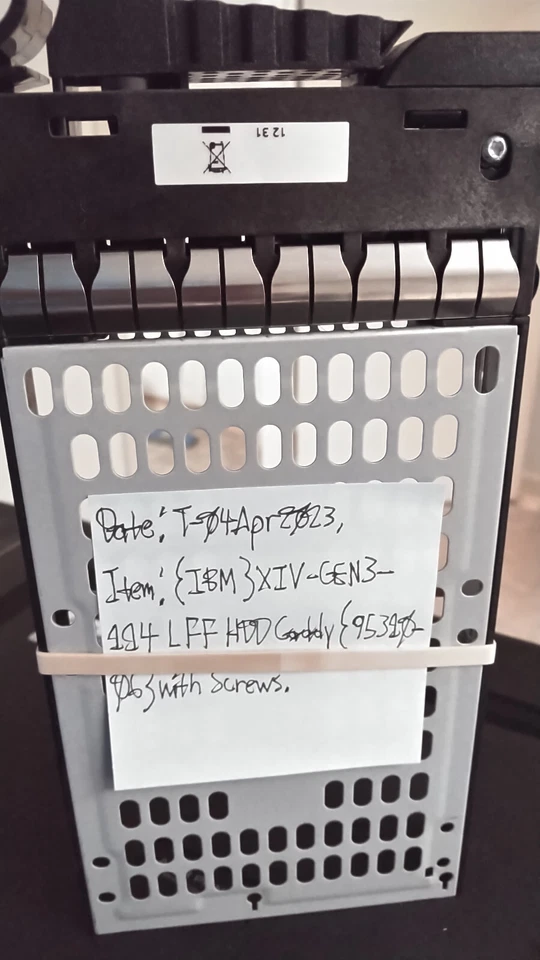 1231
Date: T-04Apr2023,
Item: {IBM}XIV-GEN3-
114 LFF HDD Caddy {95310-
06} with Screws.